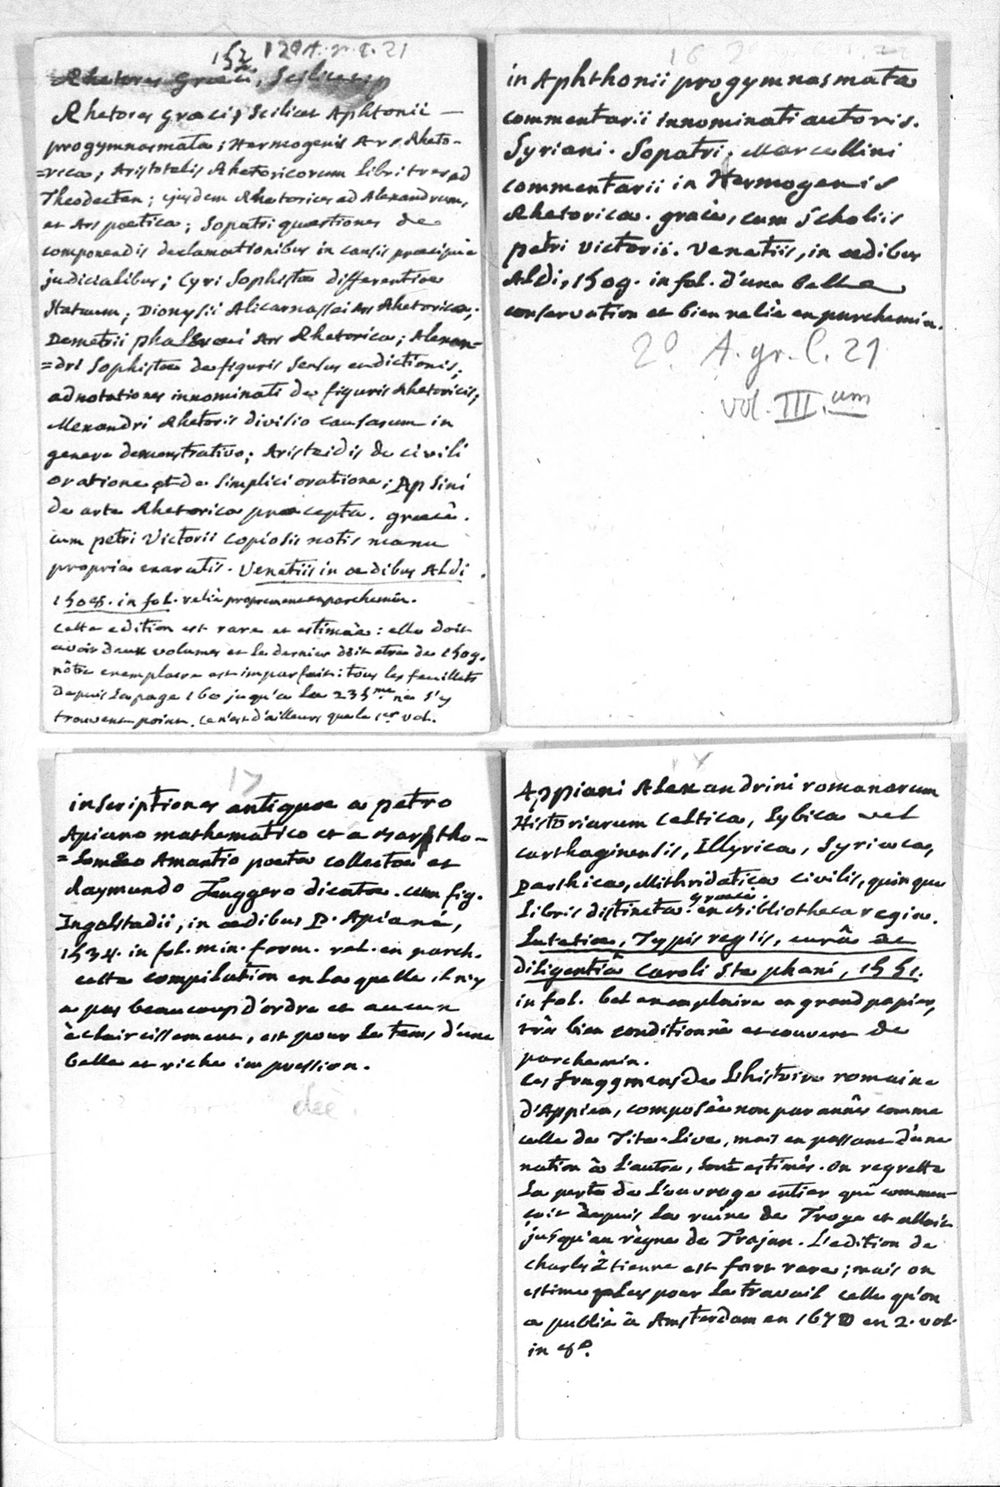 15 2° A. gr. C. 21
Rhetores Græci, Scilicet
Rhetores græci, Scilicet Aphtonii —
progymnasmata; Hermogenis Ars Rheto-
=rica; Aristotelis Rhetoricorum Libri tres ad
Theodecten; ejusdem Rhetorices ad Alexandrum,
et Ars poetica; Sopatri quæstiones de
componendis declamationibus in causis præcipuè
judicialibus; Cyri Sophistæ differentiæ
Statuum; Dionysii Alicarnassei Ars Rhetorica;
Demetrii phalerei Ars Rhetorica; Alexan-
=dri Sophistæ de figuris Sensus et dictionis;
adnotationes innominati de figuris Rhetoricis;
Menandri Rhetoris divisio causarum in
genere demonstrativo; Aristeidis de civili
oratione et de Simplici oratione; Apsini
de arte Rhetorica præcepta. græcè.
cum petri Victorii copiosis notis manu
propria exaratis. Venetiis in ædibus Aldi
1508. in fol. relié proprement en parchemin.
cette edition est rare et estimée: elle doit
avoir deux volumes et le dernier doit etre de 1509.
nôtre exemplaire est imparfait: tous les feuillets
depuis la page 160 jusqu'a la 235me. ne s'y
trouvent point. ce n'est d'ailleurs que le 1er vol.
16
in Aphthonii progymnasmata
commentarii innominati autoris.
Syriani. Sopatri. Marcellini
commentarii in Hermogenis
Rhetorica. græcè, cum Scholiis
petri victorii. Venetiis, in ædibus
Aldi, 1509. in fol. d'une belle
conservation et bien relié en parchemin.
2° A. gr. C. 21
vol. III.um
17
inscriptiones antiquæ a petro
Apiano mathematico et a Bartho-
=lomeo Amantio poeta collectæ et
Raymundo Fuggero dicatæ. cum fig.
Ingolstadii, in ædibus P. Apiani,
1534. in fol. min. form. rel. en parch.
cette compilation en laquelle il n'y
a pas beaucoup d'ordre et aucun
éclaircissement, est pour le tems d'une
belle et riche impression.
dec.
Appiani Alexandrini romanarum
Historiarum Celtica, Lybica vel
carthaginensis, Illyrica, Syriaca,
Parthica, Mithridatica civilis, quinque
libris distincta. græcè. ex Bibliotheca regia.
Lutetiæ, Typis regiis, curâ ac
diligentiâ Caroli Stephani, 1551.
in fol. bel exemplaire en grand papier,
très bien conditionné et couvert de
parchemin.
Les fraggmens de L'histoire romaine
d'Appien, composée non par années comme
celle de Tite-Live, mais en passant d'une
nation à l'autre, sont estimés. on regrette
la perte de l'ouvrage entier qui commen-
çoit depuis la ruine de Troye et alloit
jusqu'au règne de Trajan. L'edition de
charles Etienne est fort rare; mais on
estime plus pour le travail celle qu'on
a publié à Amsterdam en 1670 en 2. vol.
in 8°.